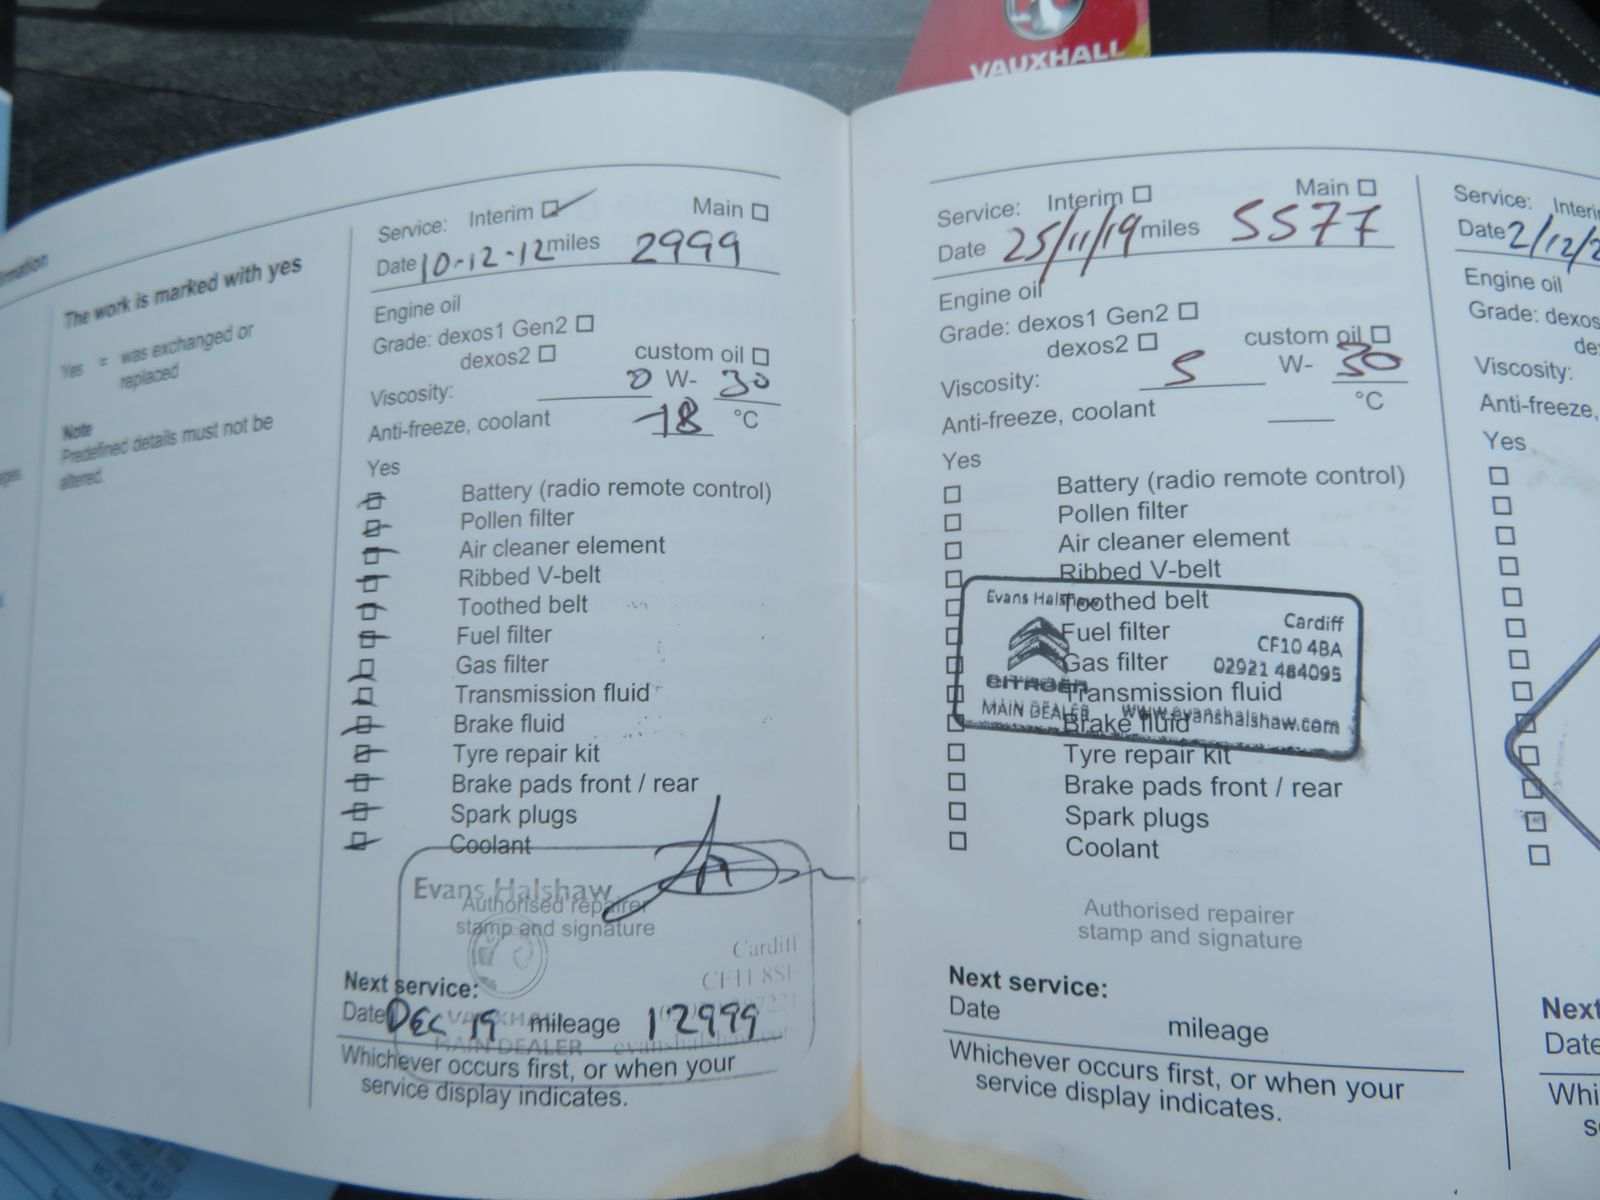 VAUXHALL
The work is marked with yes
Yes = was exchanged or
replaced
Note
Predefined details must not be
altered.
Service: Interim Main
Date 10-12-12 miles 2999
Engine oil
Grade: dexos1 Gen2
dexos2 custom oil
Viscosity: 0 W- 30
Anti-freeze, coolant -18 °C
Yes
Battery (radio remote control)
Pollen filter
Air cleaner element
Ribbed V-belt
Toothed belt
Fuel filter
Gas filter
Transmission fluid
Brake fluid
Tyre repair kit
Brake pads front / rear
Spark plugs
Coolant
Evans Halshaw
Authorised repairer
stamp and signature
Cardiff
CF11
VAUXHALL
MAIN DEALER
Next service:
Date DEC 19 mileage 12999
Whichever occurs first, or when your
service display indicates.
Service: Interim Main
Date 25/11/19 miles 5577
Engine oil
Grade: dexos1 Gen2
dexos2 custom oil
Viscosity: 5 W- 30
Anti-freeze, coolant °C
Yes
Battery (radio remote control)
Pollen filter
Air cleaner element
Ribbed V-belt
Toothed belt
Fuel filter
Gas filter
Transmission fluid
Brake fluid
Tyre repair kit
Brake pads front / rear
Spark plugs
Coolant
Evans Halshaw
Cardiff
CF10 4BA
02921 484095
CITROEN
MAIN DEALER www.evanshalshaw.com
Authorised repairer
stamp and signature
Next service:
Date mileage
Whichever occurs first, or when your
service display indicates.
Service:
Date 2/12/
Engine oil
Grade:
Viscosity:
Anti-freeze,
Yes
Next
Date